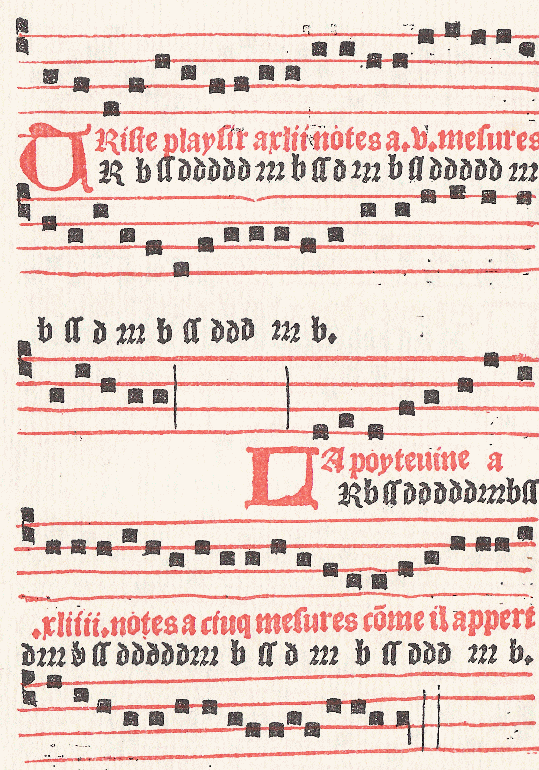 TRiste playsir a xlii notes a .v. mesures
R b ſſ ddddd rrr b ſſ d rrr b ſſ ddddd rrr
b ſſ d rrr b ſſ ddd rrr b.
LA poyteuine a
R b ſſ ddddd rrr b ſſ
.xliiii. notes a cinq mesures cõme il appert
d rrr b ſſ ddddd rrr b ſſ d rrr b ſſ ddd rrr b.